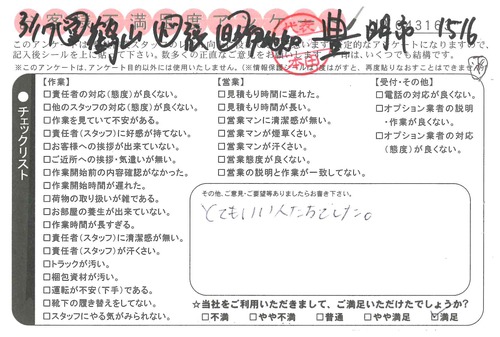 客 満足度アンケ
このアンケートは
※このアンケートは、アンケート目的以外には使用いたしません。
チェックリスト
【作業】
□責任者の対応(態度)が良くない。
□他のスタッフの対応(態度)が良くない。
□作業を見ていて不安がある。
□責任者(スタッフ)に好感が持てない。
□お客様への挨拶が出来ていない。
□ご近所への挨拶・気遣いが無い。
□作業開始前の内容確認がなかった。
□作業開始時間が遅れた。
□荷物の取り扱いが雑である。
□お部屋の養生が出来ていない。
□作業時間が長すぎる。
□責任者(スタッフ)に清潔感が無い。
□責任者(スタッフ)が汗くさい。
□トラックが汚い。
□梱包資材が汚い。
□運転が不安(下手)である。
□靴下の履き替えをしてない。
□スタッフにやる気がみられない。
【営業】
□見積もり時間に遅れた。
□見積もり時間が長い。
□営業マンに清潔感が無い。
□営業マンが煙草くさい。
□営業マンが汗くさい。
□営業態度が良くない。
□営業の説明と作業が一致してない。
【受付・その他】
□電話の対応が良くない。
□オプション業者の説明
・作業が良くない。
□オプション業者の対応
(態度)が良くない。
その他、ご意見・ご要望等ありましたらお書き下さい。
とてもいい人たちでした。
☆当社をご利用いただきまして、ご満足いただけたでしょうか?
□不満 □やや不満 □普通 □やや満足 ☑満足